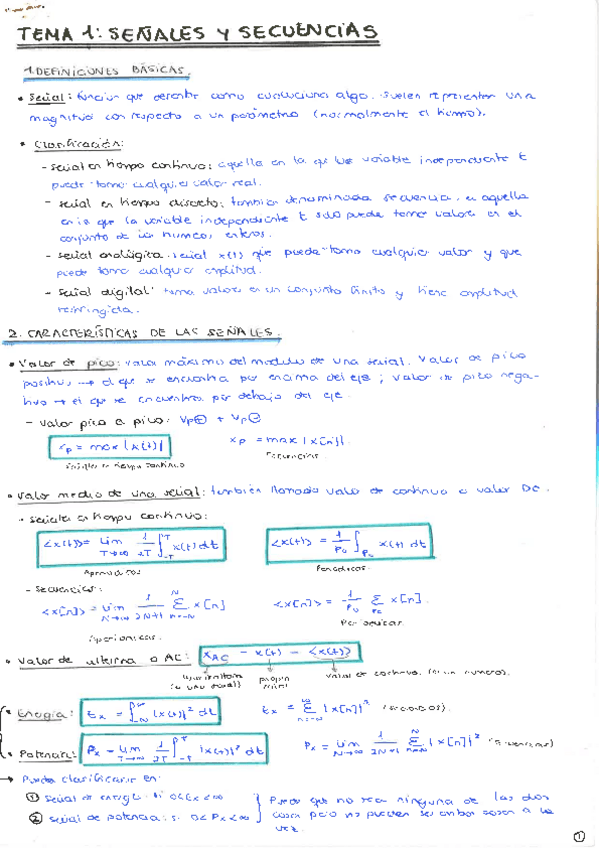 TEMA 1: SEÑALES Y SECUENCIAS
1. DEFINICIONES BÁSICAS.
• Señal: función que describe como evoluciona algo. Suelen representar una
magnitud con respecto a un parámetro (normalmente el tiempo).
• Clasificación:
- señal en tiempo continuo: aquella en la que la variable independiente t
puede tomar cualquier valor real.
- señal en tiempo discreto: también denominada secuencia, es aquella
en la que la variable independiente t solo puede tomar valores en el
conjunto de los números enteros.
- señal analógica: señal x(t) que puede tomar cualquier valor y que
puede tomar cualquier amplitud.
- señal digital: toma valores en un conjunto finito y tiene amplitud
restringida.
2. CARACTERÍSTICAS DE LAS SEÑALES.
• Valor de pico: valor máximo del modulo de una señal. Valor de pico
positivo → el que se encuentra por encima del eje; valor de pico nega-
tivo → el que se encuentra por debajo del eje.
- Valor pico a pico: Vp⊕ + Vp⊖
xp = max |x(t)| xp = max |x[n]|.
Señales en tiempo continuo Secuencias.
• Valor medio de una señal: también llamado valor de continua o valor DC.
- Señales en tiempo continuo:
<x(t)> = lim T→∞ 1/2T ∫-T^T x(t) dt <x(t)> = 1/P0 ∫P0 x(t) dt
Aperiódicas Periódicas.
- Secuencias:
<x[n]> = lim N→∞ 1/2N+1 Σ n=-N^N x[n] <x[n]> = 1/P0 Σ P0 x[n].
Aperiódicas. Periódicas.
• Valor de alterna o AC: xAC = x(t) - <x(t)>
propia señal valor de continua. (es un número).
• Energía: Ex = ∫-∞^∞ |x(t)|² dt Ex = Σ n=-∞^∞ |x[n]|²
• Potencia: Px = lim T→∞ 1/2T ∫-T^T |x(t)|² dt Px = lim N→∞ 1/2N+1 Σ n=-N^N |x[n]|² (secuencias)
→ Pueden clasificarse en:
① señal de energía: si 0<Ex<∞ } Puede que no sea ninguna de las dos
② señal de potencia: si 0<Px<∞ } cosas pero no pueden ser ambas cosas a la
vez.
①